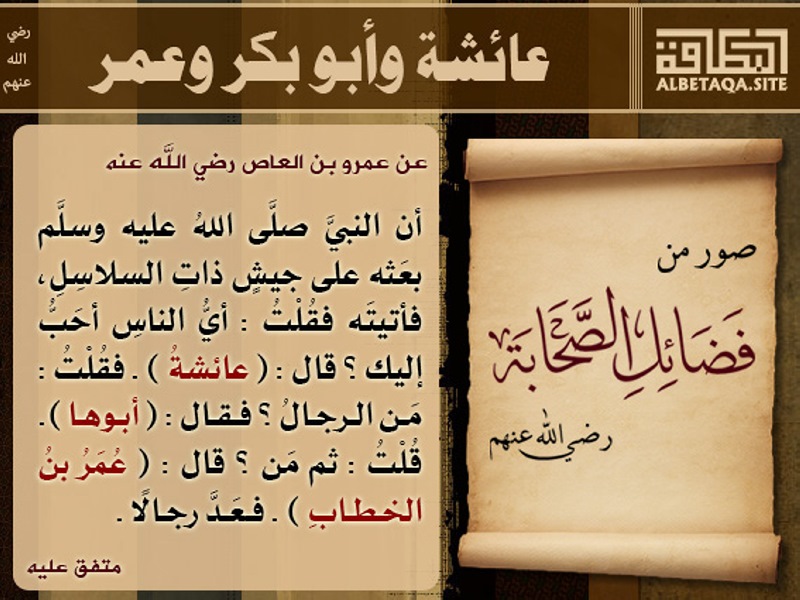 عائشة وأبو بكر وعمر
رضي
الله
عنهم
البطاقة
ALBETAQA.SITE
صور من
فَضَائِلِ الصَّحَابَة
رضي الله عنهم
عن عمرو بن العاص رضي اللَّه عنه
أن النبيَّ صلَّى اللهُ عليه وسلَّم
بعَثه على جيشٍ ذاتِ السلاسِلِ،
فأتيتَه فقُلْتُ : أيُّ الناسِ أحَبُّ
إليك ؟ قال : ( عائشةُ ) . فقُلْتُ :
مَن الرجالُ ؟ فقال : ( أبوها ) .
قُلْتُ : ثم مَن ؟ قال : ( عُمَرُ بنُ
الخطابِ ) . فعَدَّ رجالًا .
متفق عليه